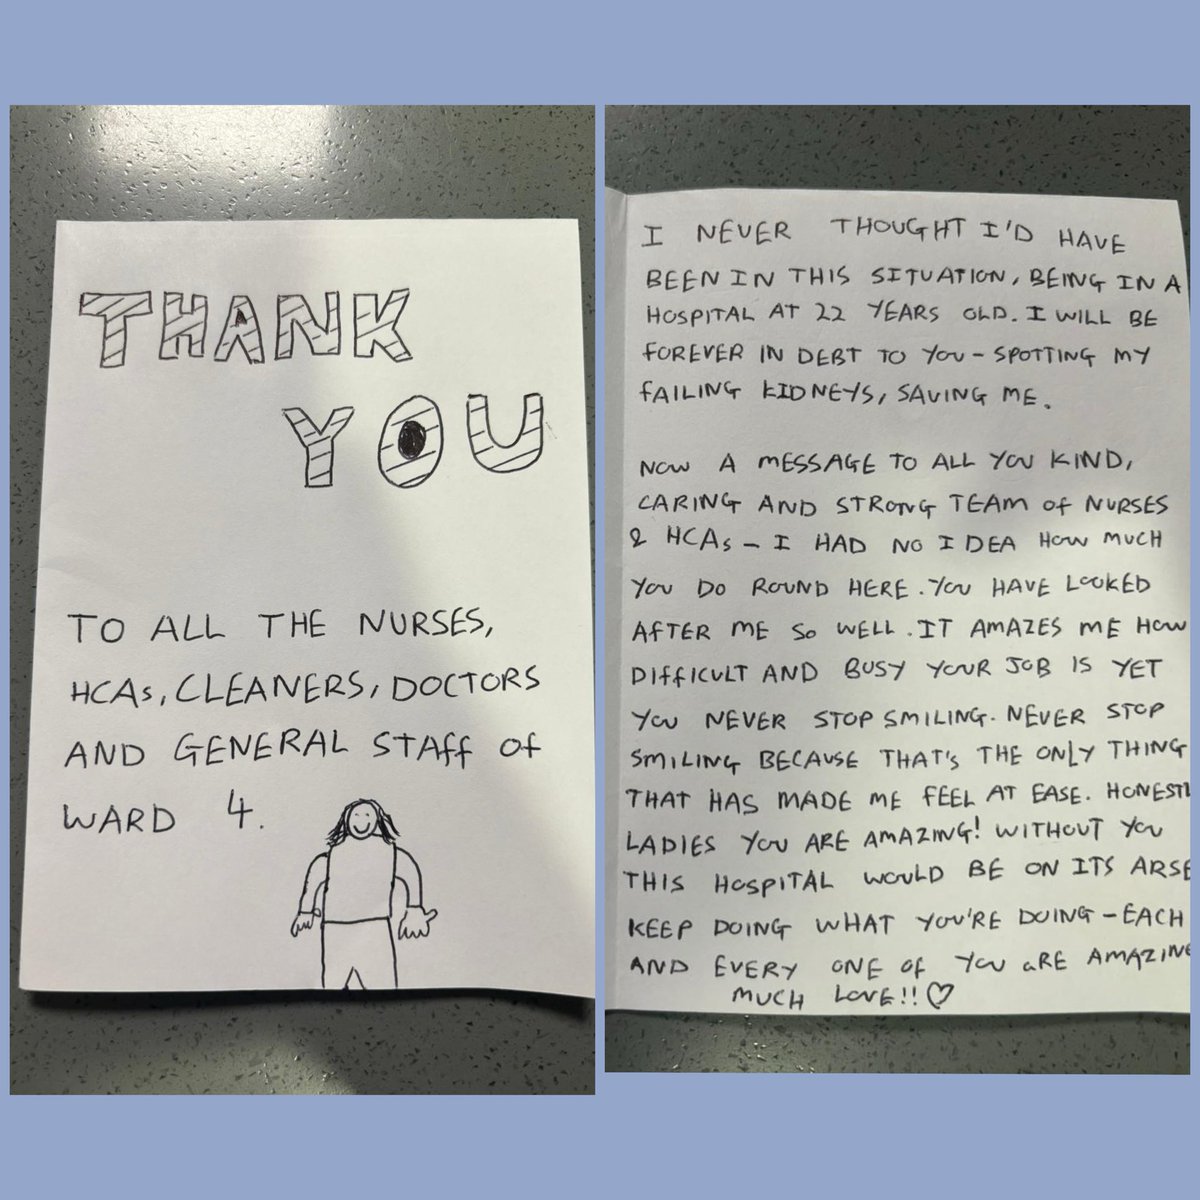 THANK
YOU
TO ALL THE NURSES,
HCAs, CLEANERS, DOCTORS
AND GENERAL STAFF OF
WARD 4.
I NEVER THOUGHT I'D HAVE
BEEN IN THIS SITUATION, BEING IN A
HOSPITAL AT 22 YEARS OLD. I WILL BE
FOREVER IN DEBT TO YOU - SPOTTING MY
FAILING KIDNEYS, SAVING ME.
NOW A MESSAGE TO ALL YOU KIND,
CARING AND STRONG TEAM OF NURSES
& HCAs - I HAD NO IDEA HOW MUCH
YOU DO ROUND HERE. YOU HAVE LOOKED
AFTER ME SO WELL. IT AMAZES ME HOW
DIFFICULT AND BUSY YOUR JOB IS YET
YOU NEVER STOP SMILING. NEVER STOP
SMILING BECAUSE THAT'S THE ONLY THING
THAT HAS MADE ME FEEL AT EASE. HONESTL
LADIES YOU ARE AMAZING! WITHOUT YOU
THIS HOSPITAL WOULD BE ON ITS ARSE
KEEP DOING WHAT YOU'RE DOING - EACH
AND EVERY ONE OF YOU ARE AMAZING
MUCH LOVE!! ♡